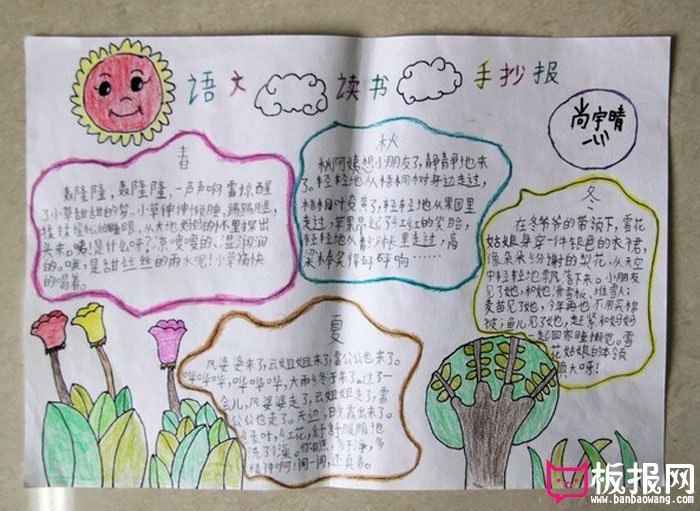 语文 读书 手抄报
尚宇晴
春
轰隆隆,轰隆隆,一声声响雷惊醒
了小草甜甜的梦。小草伸伸懒腰,踢踢腿,
揉揉惺忪的睡眼,从大地妈妈的怀里探出
头来。咦!是什么呀?凉喷喷的、湿润润
的。哦,是甜丝丝的雨水呢!小草痛快
的喝着。
秋
秋阿姨想小朋友了,静静地来
了。轻轻地从梧桐树身边走过,
梧桐叶变黄了,轻轻地从果园里
走过,苹果吊起了红红的笑脸,
轻轻地从青纱帐里走过,高
梁棒笑得呼呼响……
冬
在冬爷爷的带领下,雪花
姑娘身穿一件银色的衣裙,
像朵朵的梨花,从天空
中轻轻地飘落下来。小朋友
见了她,和她滑雪板,堆雪人;
麦苗见了她,今年再也不用买棉
被;鱼儿见了她,赶紧和妈妈
一起回家睡懒觉。雪
花姑娘的本领
真大呀!
夏
风婆婆来了,云姐姐来了,雷公公也来了。
哗哗哗,哗哗哗,大雨冬于来了。过了一
会儿,风婆婆走了,云姐姐走了,雷
公公也走了。天边,日头露出来了。
叶,红花,舒舒服服地
洗了个澡。你瞧,多干净,多
精神啊!闻一闻,还真香。
板报网
www.banbaowang.com